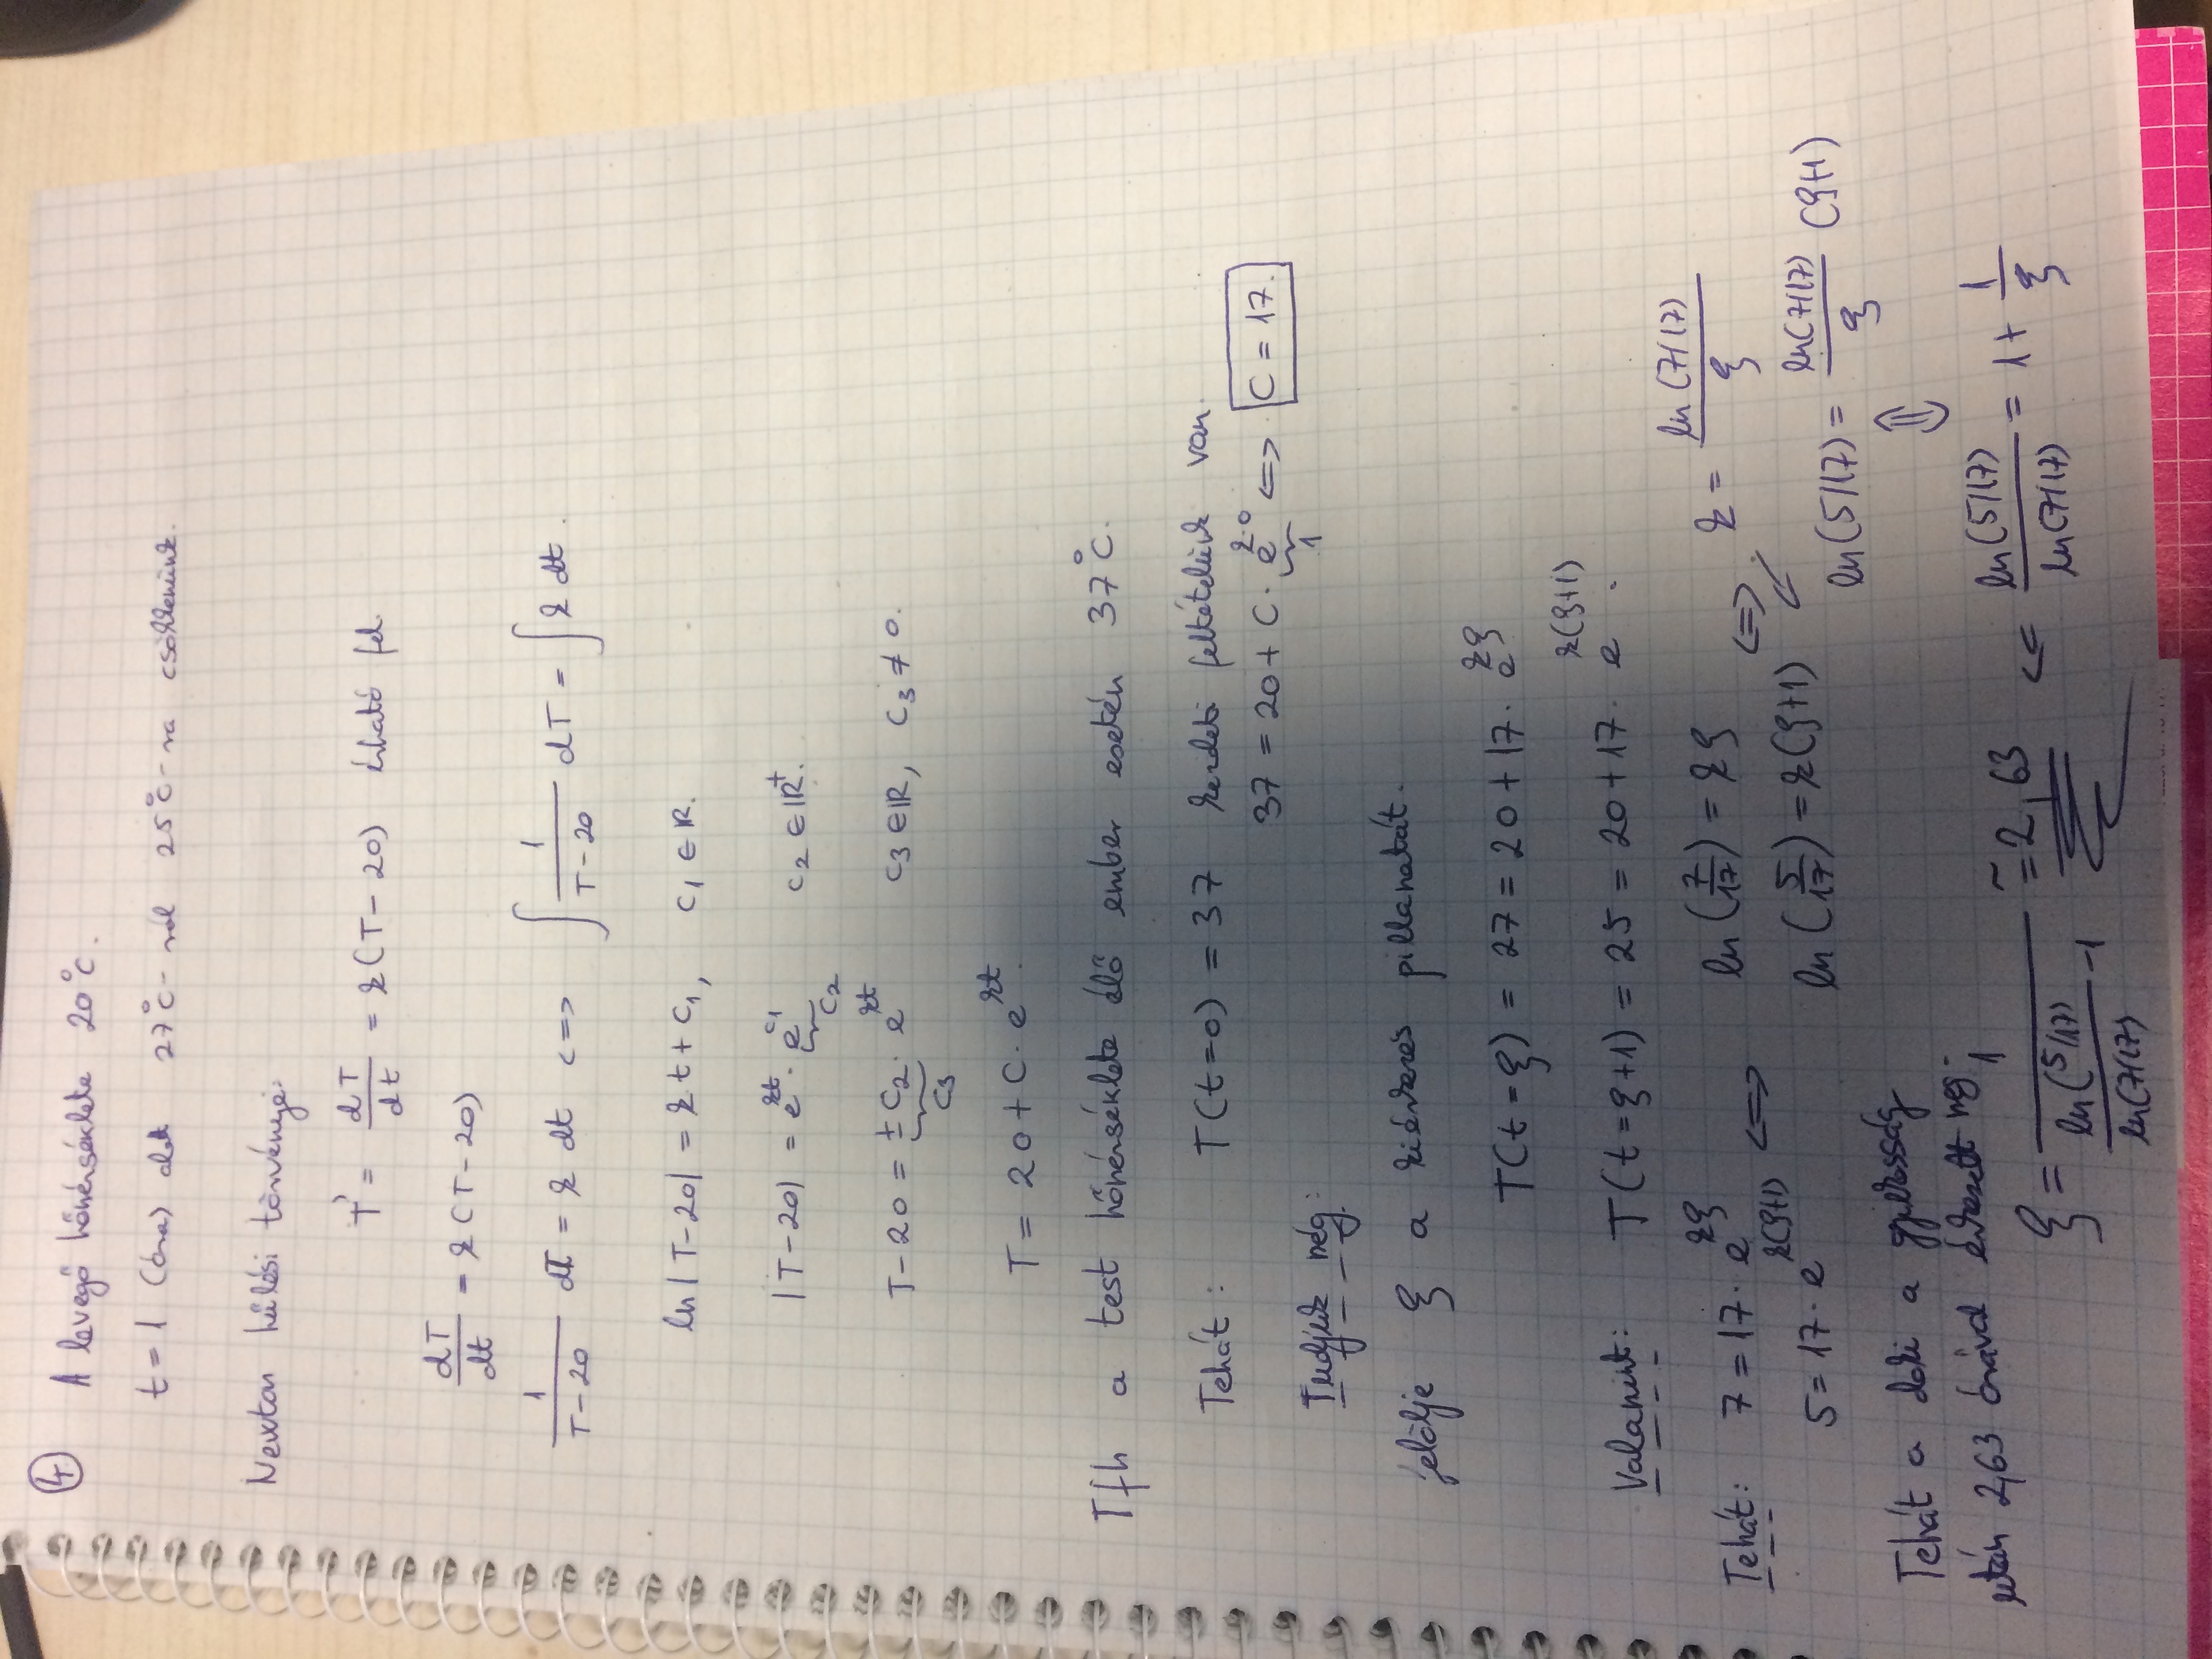 ④ A levegő hőmérséklete 20°C.
t=1 (óra) alatt 27°C-ról 25°C-ra csökkenünk.
Newton hűlési törvénye:
T' = dT/dt = k(T-20) írható fel.
dT/dt = k(T-20)
1/(T-20) dT = k dt <=> ∫ 1/(T-20) dT = ∫ k dt.
ln|T-20| = kt + c₁, c₁ ∈ ℝ.
|T-20| = e^(kt) · e^(c₁) c₂ ∈ ℝ⁺.
c₂
T-20 = ±c₂ · e^(kt) c₃ ∈ ℝ, c₃ ≠ 0.
c₃
T = 20 + C · e^(kt).
Tfh a test hőmérséklete élő ember esetén 37°C.
Tehát: T(t=0) = 37 kezdeti feltételünk van.
37 = 20 + C · e^(k·0) <=> C = 17.
1
Tudjuk még:
jelölje ξ a kiérkezés pillanatát.
T(t=ξ) = 27 = 20 + 17 · e^(kξ)
Valamint: T(t=ξ+1) = 25 = 20 + 17 · e^(k(ξ+1)).
Tehát: 7 = 17 · e^(kξ) <=> ln(7/17) = kξ <=> k = ln(7/17)/ξ
5 = 17 · e^(k(ξ+1)) ln(5/17) = k(ξ+1) ↙ ln(5/17) = ln(7/17)/ξ (ξ+1)
⇕
Tehát a doki a gyilkosság
után 2,63 órával érkezett meg.
ξ = 1/(ln(5/17)/ln(7/17) - 1) ≅ 2,63 <= ln(5/17)/ln(7/17) = 1 + 1/ξ